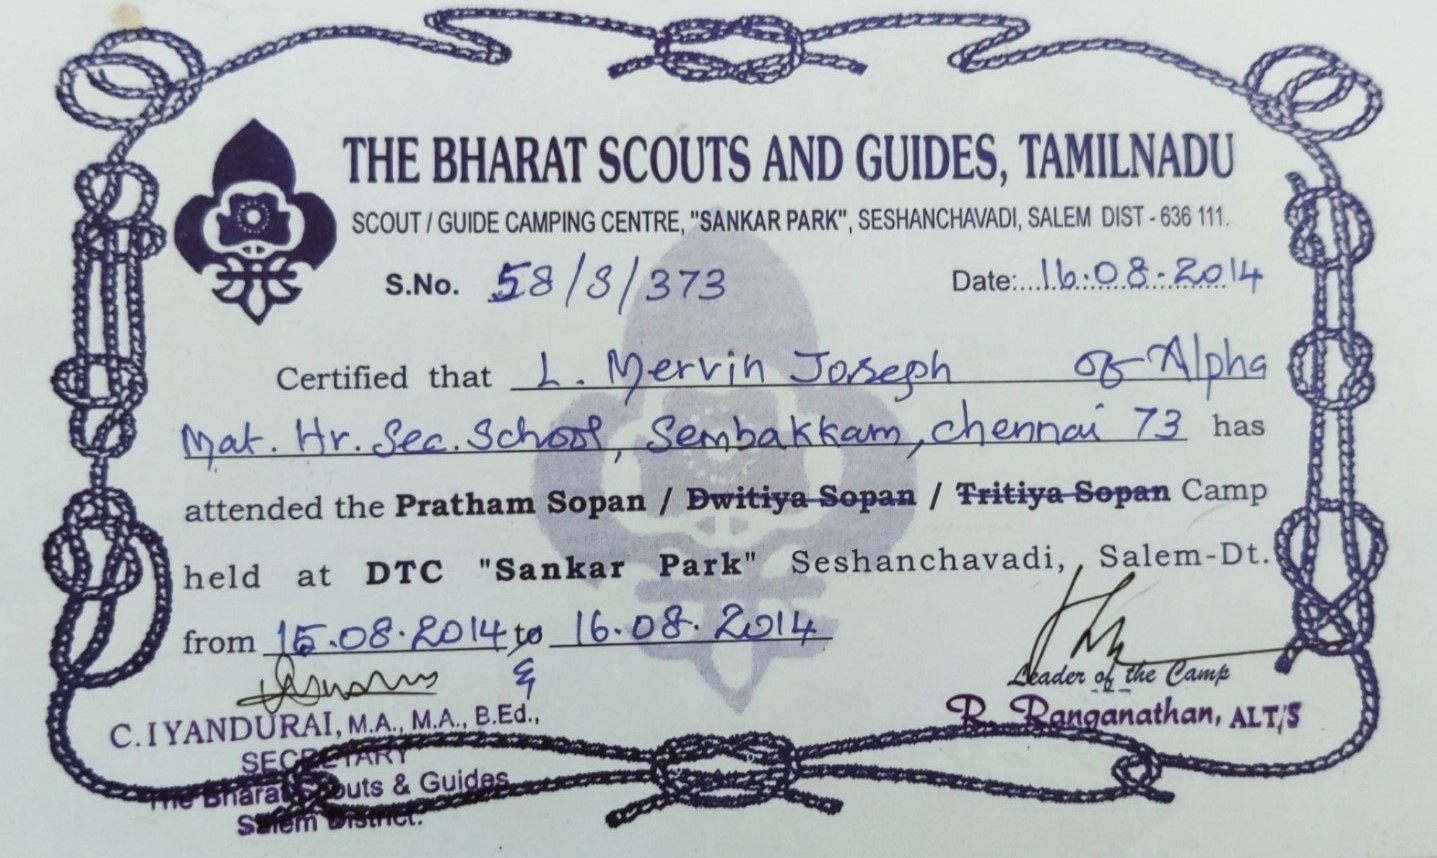 THE BHARAT SCOUTS AND GUIDES, TAMILNADU
SCOUT / GUIDE CAMPING CENTRE, "SANKAR PARK", SESHANCHAVADI, SALEM DIST - 636 111.
S.No. 58/8/373 Date:...16.08.2014
Certified that L. Mervin Joseph of Alpha
Mat. Hr. Sec. School, Sembakkam, chennai 73 has
attended the Pratham Sopan / Dwitiya Sopan / Tritiya Sopan Camp
held at DTC "Sankar Park" Seshanchavadi, Salem-Dt.
from 15.08.2014 to 16.08.2014
&
Leader of the Camp
R. Ranganathan, ALT/S
C.IYANDURAI, M.A., M.A., B.Ed.,
SECRETARY
The Bharat Scouts & Guides
Salem District.